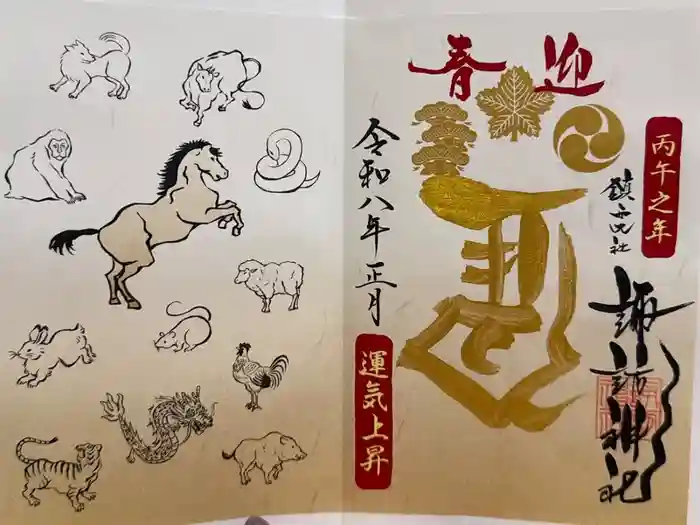 迎春
丙午之年
鎮西大社
諏訪神社
令和八年正月
運気上昇